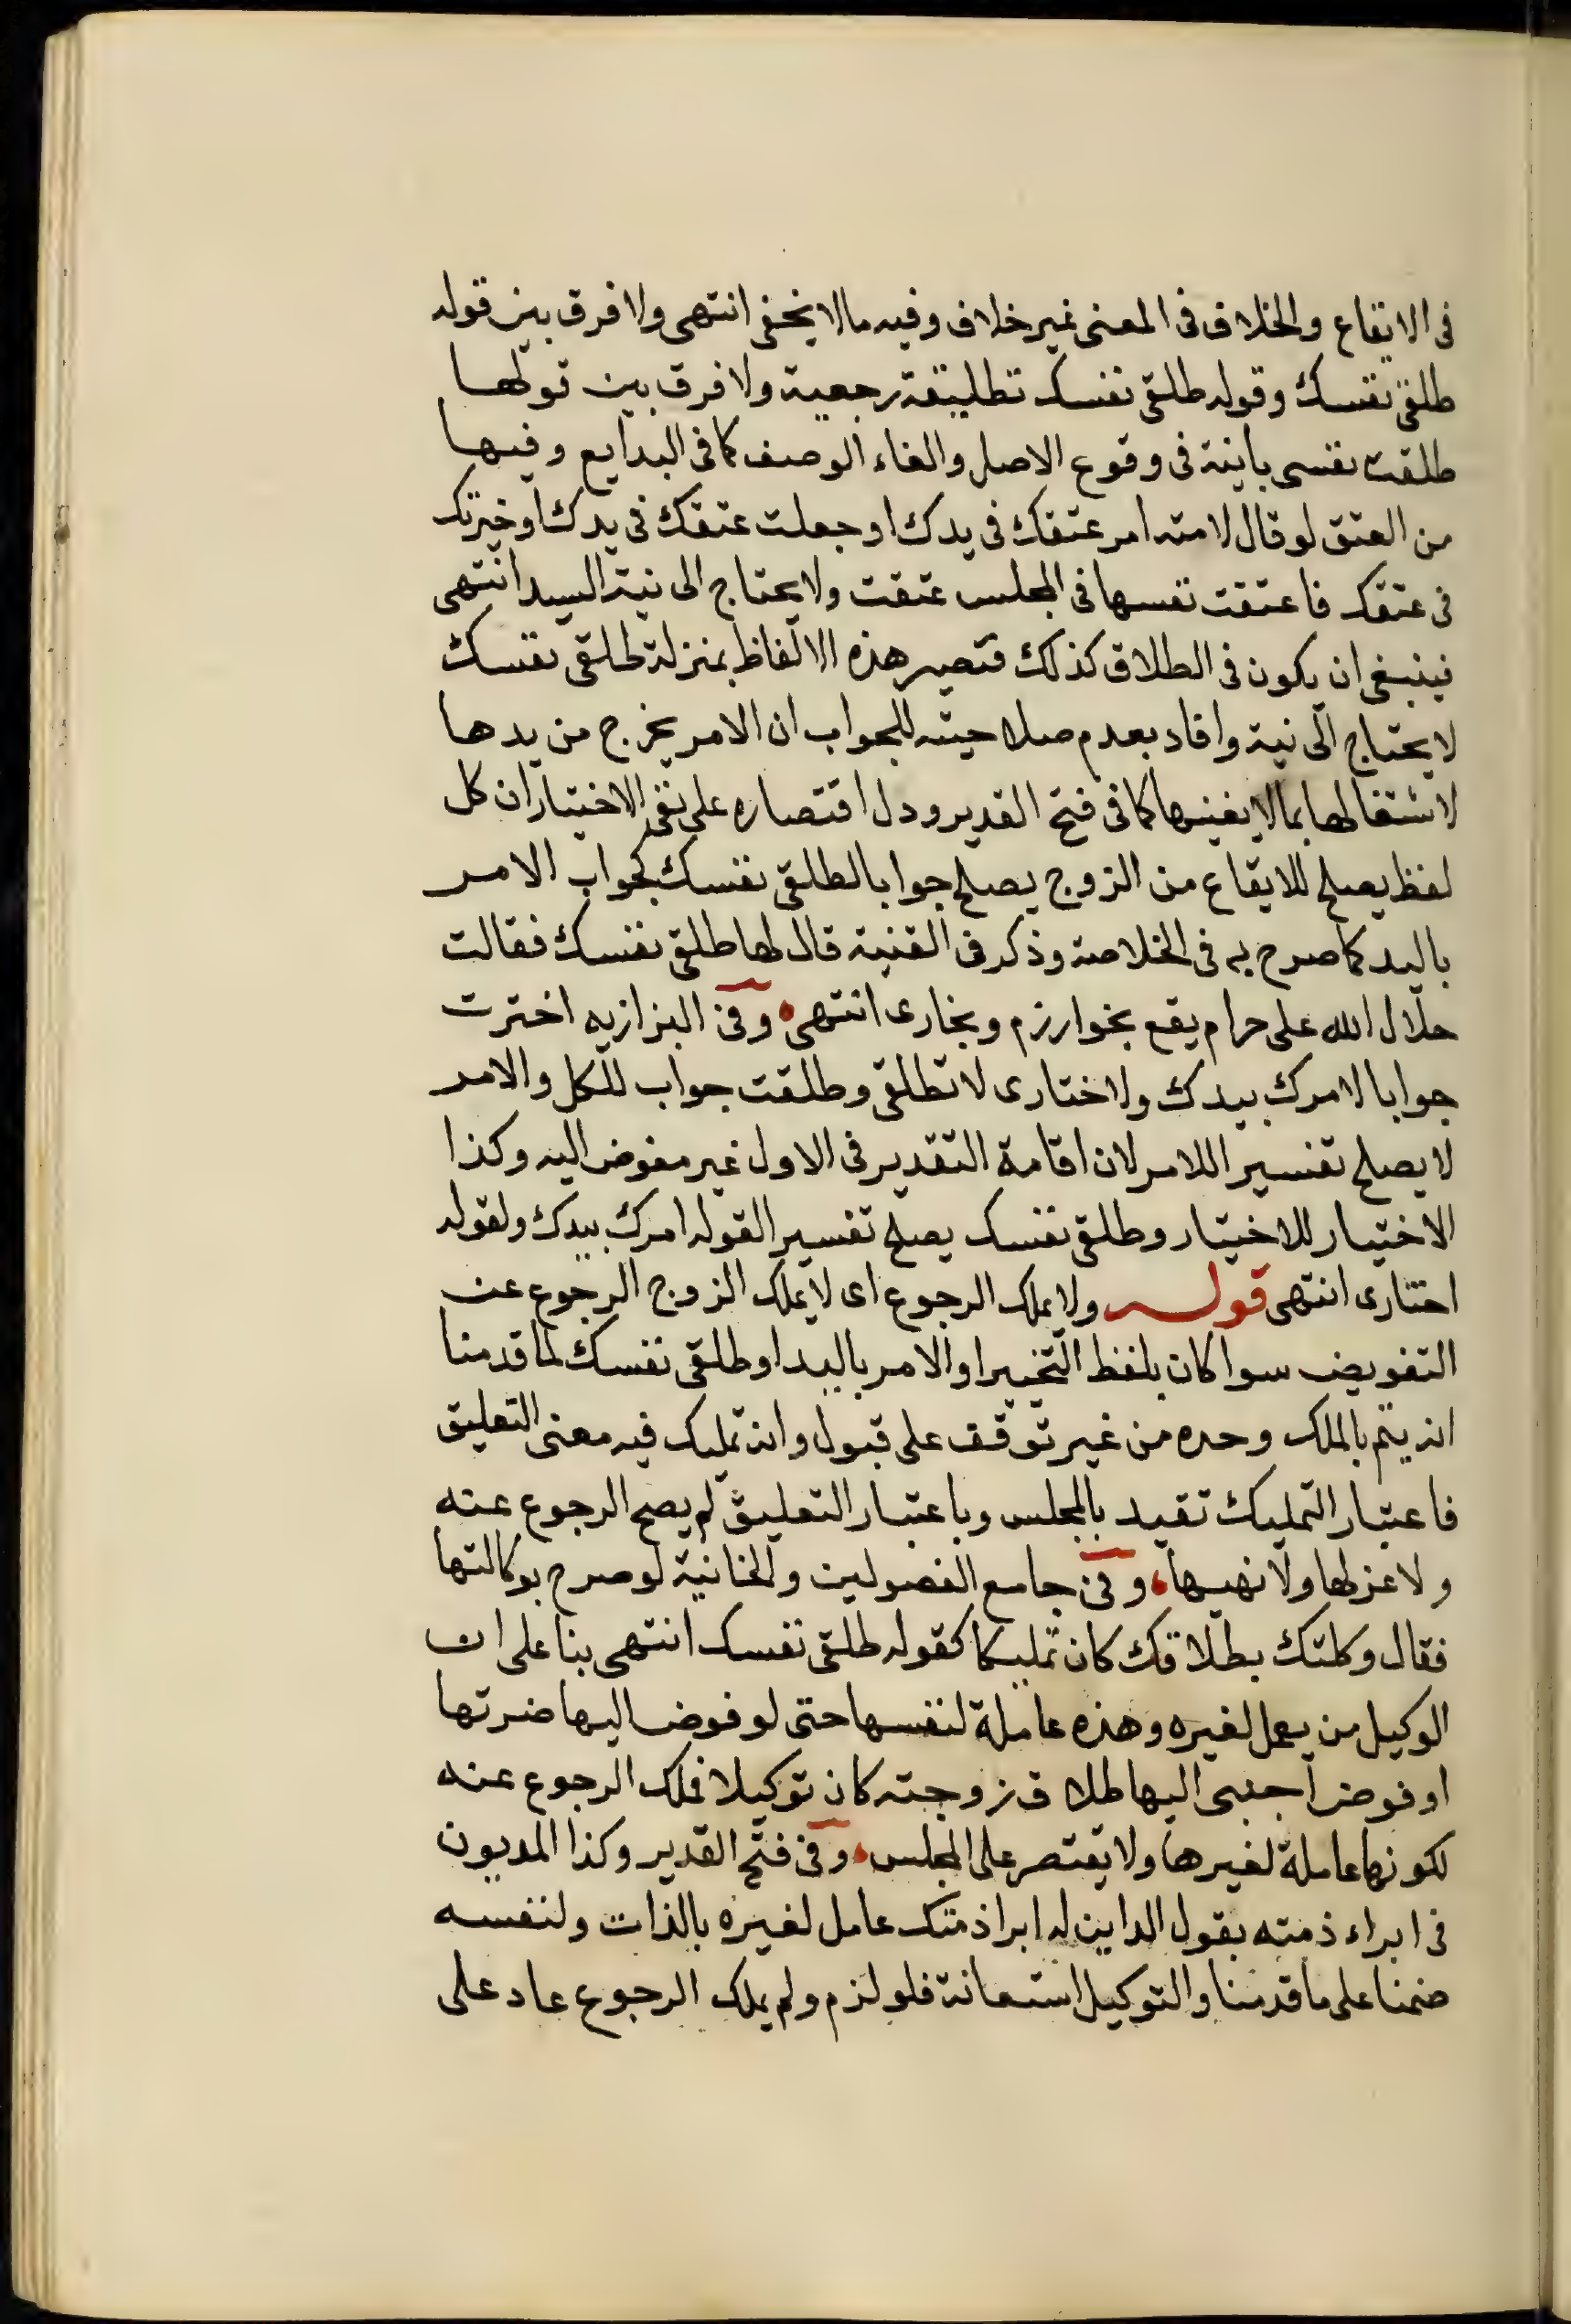 فى الايقاع والخلاف فى المعنى غير خلاف وفيه مالايخفى انتهى ولا فرق بين قوله
طلقى نفسك وقوله طلقى نفسك تطليقة رجعية ولا فرق بين قولها
طلقت نفسى باينة فى وقوع الاصل والغاء الوصف كما فى البدايع وفيها
من العتق لو قال لامته امر عتقك فى يدك او جعلت عتقك فى يدك او خيرتك
فى عتقك فاعتقت نفسها فى المجلس عتقت ولا يحتاج الى نية السيد انتهى
فينبغى ان يكون فى الطلاق كذلك فتصير هذه الالفاظ بمنزلة طلقى نفسك
لا يحتاج الى نية وافاد بعدم صلاحيته للجواب ان الامر يخرج من يدها
لاشتغالها بمالا يعنيها كما فى فتح القدير ودل اقتصاره على نفى الاختيار ان كل
لفظ يصلح للايقاع من الزوج يصلح جوابا لطلقى نفسك كجواب الامر
باليد كما صرح به فى الخلاصة وذكر فى القنية قال لها طلقى نفسك فقالت
حلال الله على حرام يقع بخوارزم وبخارى انتهى وفى البزازيه اخترت
جوابا لامرك بيدك ولاختارى لا تطلقى وطلقت جواب للكل والامر
لا يصلح تفسيرا للامر لان اقامة التقدير فى الاول غير مفوض اليه وكذا
الاختيار للاختيار وطلقى نفسك يصلح تفسيرا لقوله امرك بيدك ولقوله
اختارى انتهى قوله ولا يملك الرجوع اى لا يملك الزوج الرجوع عن
التفويض سوا كان بلفظ التخيير او الامر باليد او طلقى نفسك لما قدمنا
انه يتم بالملك وحده من غير توقف على قبول وانه تمليك فيه معنى التعليق
فاعتبار التمليك تقيد بالمجلس وباعتبار التعليق لم يصح الرجوع عنه
ولا عزلها ولا نهيها وفى جامع الفصولين والخانية لو صرح بوكالتها
فقال وكلتك بطلاقك كان تمليكا كقوله طلقى نفسك انتهى بنا على ان
الوكيل من يعمل لغيره وهذه عاملة لنفسها حتى لو فوض اليها ضرتها
او فوض اجنبى اليها طلاق زوجته كان توكيلا فملك الرجوع عنه
لكونها عاملة لغيرها ولا يقتصر على المجلس وفى فتح القدير وكذا المديون
فى ابراء ذمته بقول الداين له ابرا ذمتك عامل لغيره بالذات ولنفسه
ضمنا على ما قدمنا والتوكيل استعانة فلو لزم ولم يملك الرجوع عاد على